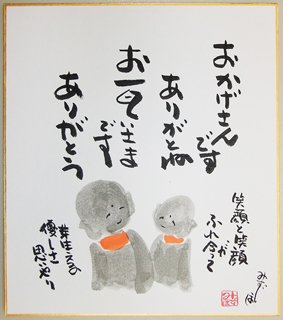 おかげさん
です
ありがとね
お一ていさま
です
ありがとう
笑顔と笑顔
が
ふれ合って
芽生える
優しさ
思いやり